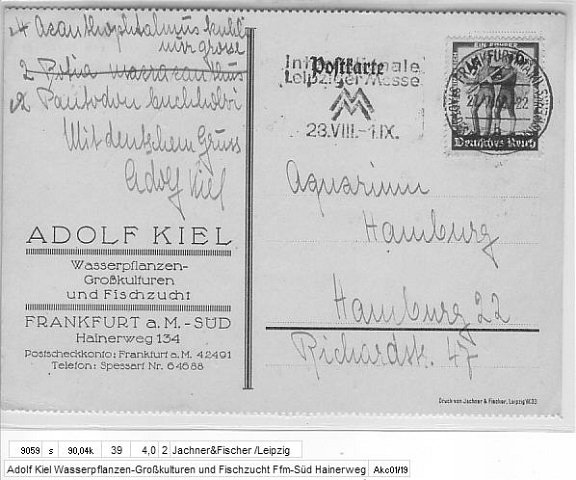 4 Acanthophtalmus kuhli
nur grosse
2 Botia macracanthus
2 Pantodon buchholzi
Mit deutschem Gruss
Adolf Kiel
ADOLF KIEL
Wasserpflanzen-
Großkulturen
und Fischzucht
FRANKFURT a. M. - SÜD
Hainerweg 134
Postscheckkonto: Frankfurt a. M. 42491
Telefon: Spessart Nr. 64688
Postkarte
Internationale
Leipziger Messe
28.VIII.-1.IX.
EIN BRUDER
Deutsches Reich
FRANKFURT
Aquarium
Hamburg
Hamburg 22
Richardstr. 47
Druck von Jachner & Fischer, Leipzig W33
9059 s 90,04k 39 4,0 2 Jachner&Fischer /Leipzig
Adolf Kiel Wasserpflanzen-Großkulturen und Fischzucht Ffm-Süd Hainerweg Akc01/19